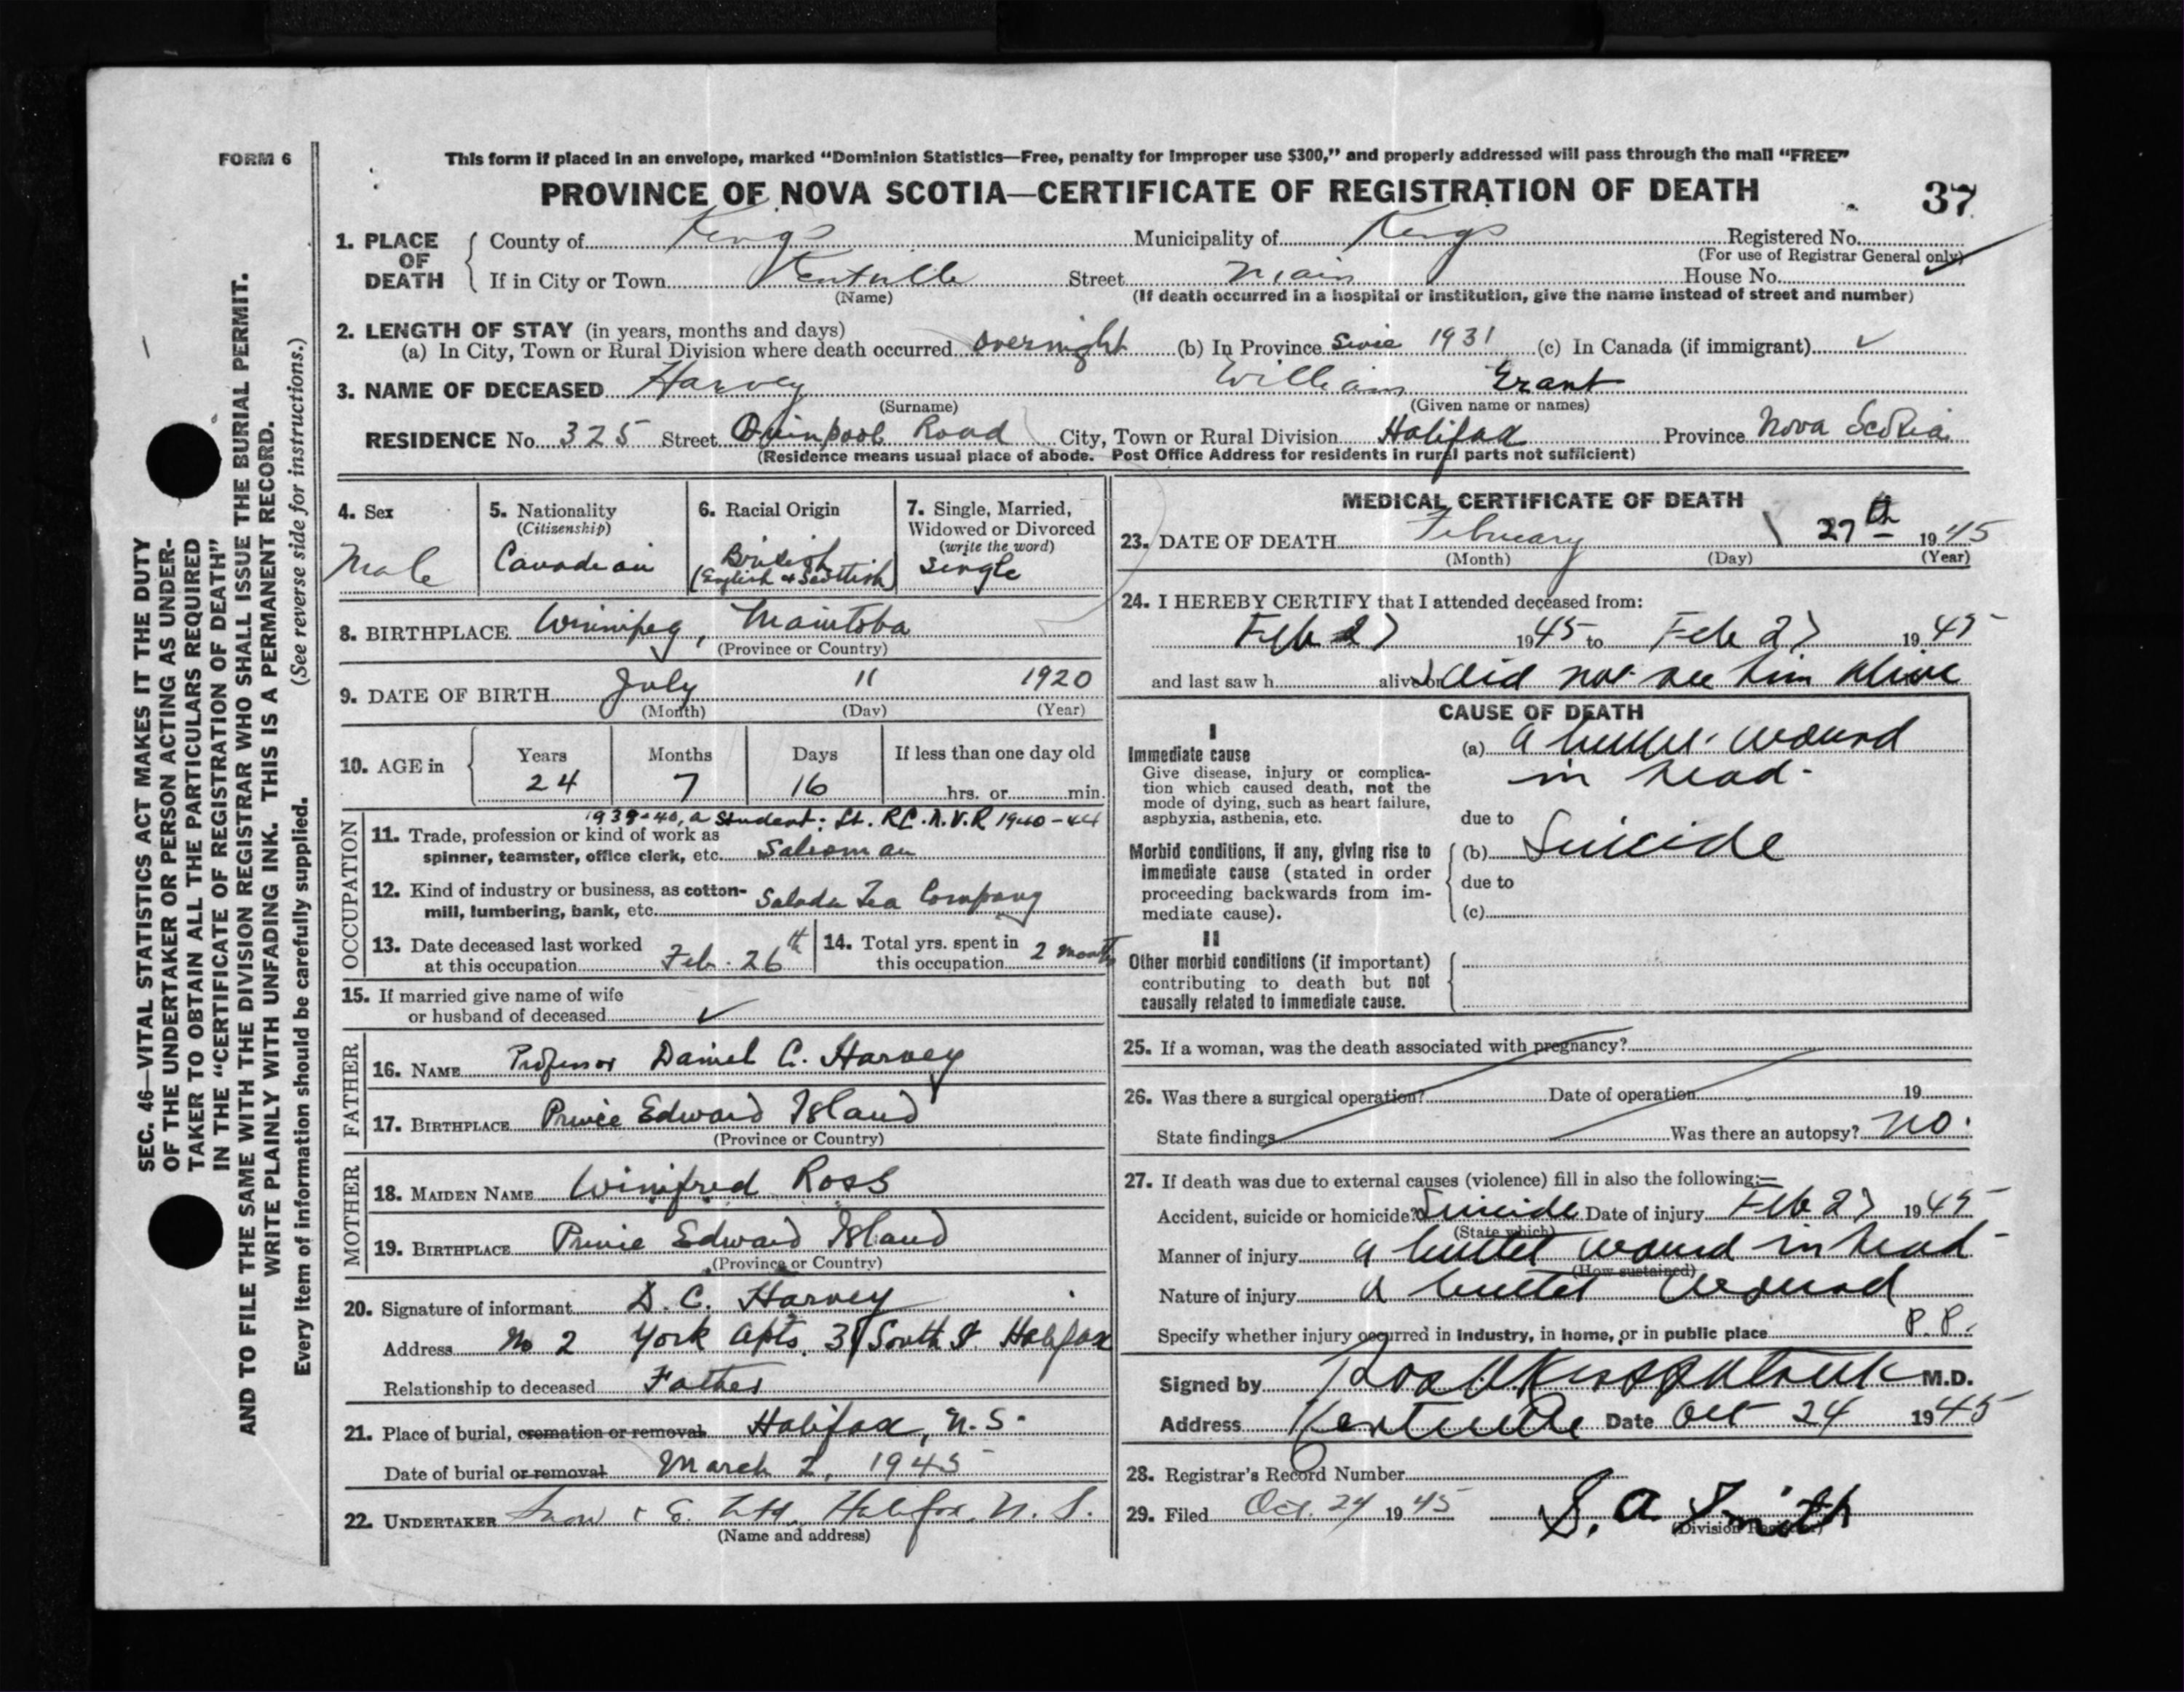 FORM 6
This form if placed in an envelope, marked “Dominion Statistics—Free, penalty for improper use $300,” and properly addressed will pass through the mail “FREE”
PROVINCE OF NOVA SCOTIA—CERTIFICATE OF REGISTRATION OF DEATH 37
SEC. 46—VITAL STATISTICS ACT MAKES IT THE DUTY
OF THE UNDERTAKER OR PERSON ACTING AS UNDER-
TAKER TO OBTAIN ALL THE PARTICULARS REQUIRED
IN THE “CERTIFICATE OF REGISTRATION OF DEATH”
AND TO FILE THE SAME WITH THE DIVISION REGISTRAR WHO SHALL ISSUE THE BURIAL PERMIT.
WRITE PLAINLY WITH UNFADING INK. THIS IS A PERMANENT RECORD.
Every item of information should be carefully supplied. (See reverse side for instructions.)
1. PLACE OF DEATH County of Kings Municipality of Kings Registered No.
(For use of Registrar General only)
If in City or Town Kentville Street Main House No.
(Name) (If death occurred in a hospital or institution, give the name instead of street and number)
2. LENGTH OF STAY (in years, months and days)
(a) In City, Town or Rural Division where death occurred overnight (b) In Province Since 1931 (c) In Canada (if immigrant) ✓
3. NAME OF DECEASED Harvey William Grant
(Surname) (Given name or names)
RESIDENCE No. 325 Street Quinpool Road City, Town or Rural Division Halifax Province Nova Scotia
(Residence means usual place of abode. Post Office Address for residents in rural parts not sufficient)
4. Sex
Male
5. Nationality
(Citizenship)
Canadian
6. Racial Origin
British
(English & Scottish)
7. Single, Married,
Widowed or Divorced
(write the word)
Single
8. BIRTHPLACE Winnipeg, Manitoba
(Province or Country)
9. DATE OF BIRTH July 11 1920
(Month) (Day) (Year)
10. AGE in Years Months Days If less than one day old
24 7 16 hrs. or min.
OCCUPATION
1939-40, a student; Lt. R.C.N.V.R 1940-44
11. Trade, profession or kind of work as
spinner, teamster, office clerk, etc. Salesman
12. Kind of industry or business, as cotton-
mill, lumbering, bank, etc. Salada Tea Company
13. Date deceased last worked
at this occupation Feb. 26th
14. Total yrs. spent in
this occupation 2 months
15. If married give name of wife
or husband of deceased ✓
FATHER
16. NAME Professor Daniel C. Harvey
17. BIRTHPLACE Prince Edward Island
(Province or Country)
MOTHER
18. MAIDEN NAME Winifred Ross
19. BIRTHPLACE Prince Edward Island
(Province or Country)
20. Signature of informant D. C. Harvey
Address No 2 York Apts. 31 South St. Halifax
Relationship to deceased Father
21. Place of burial, cremation or removal Halifax, N.S.
Date of burial or removal March 2, 1945
22. UNDERTAKER Snow & Co. Ltd. Halifax. N. S.
(Name and address)
MEDICAL CERTIFICATE OF DEATH
23. DATE OF DEATH February 27th 1945
(Month) (Day) (Year)
24. I HEREBY CERTIFY that I attended deceased from:
Feb 27 1945 to Feb 27 1945
and last saw h alive on I did not see him alive
CAUSE OF DEATH
I
Immediate cause
Give disease, injury or complica-
tion which caused death, not the
mode of dying, such as heart failure,
asphyxia, asthenia, etc.
(a) a bullet wound
in head.
due to
Morbid conditions, if any, giving rise to
immediate cause (stated in order
proceeding backwards from im-
mediate cause).
(b) Suicide
due to
(c)
II
Other morbid conditions (if important)
contributing to death but not
causally related to immediate cause.
25. If a woman, was the death associated with pregnancy?
26. Was there a surgical operation? Date of operation 19
State findings Was there an autopsy? No.
27. If death was due to external causes (violence) fill in also the following:—
Accident, suicide or homicide? Suicide Date of injury Feb 27 1945
(State which)
Manner of injury a bullet wound in head
(How sustained)
Nature of injury a bullet wound
Specify whether injury occurred in industry, in home, or in public place P.P.
Signed by M.D.
Address Kentville Date Oct 24 1945
28. Registrar's Record Number
29. Filed Oct. 24 1945 S. A. Smith
(Division Registrar)